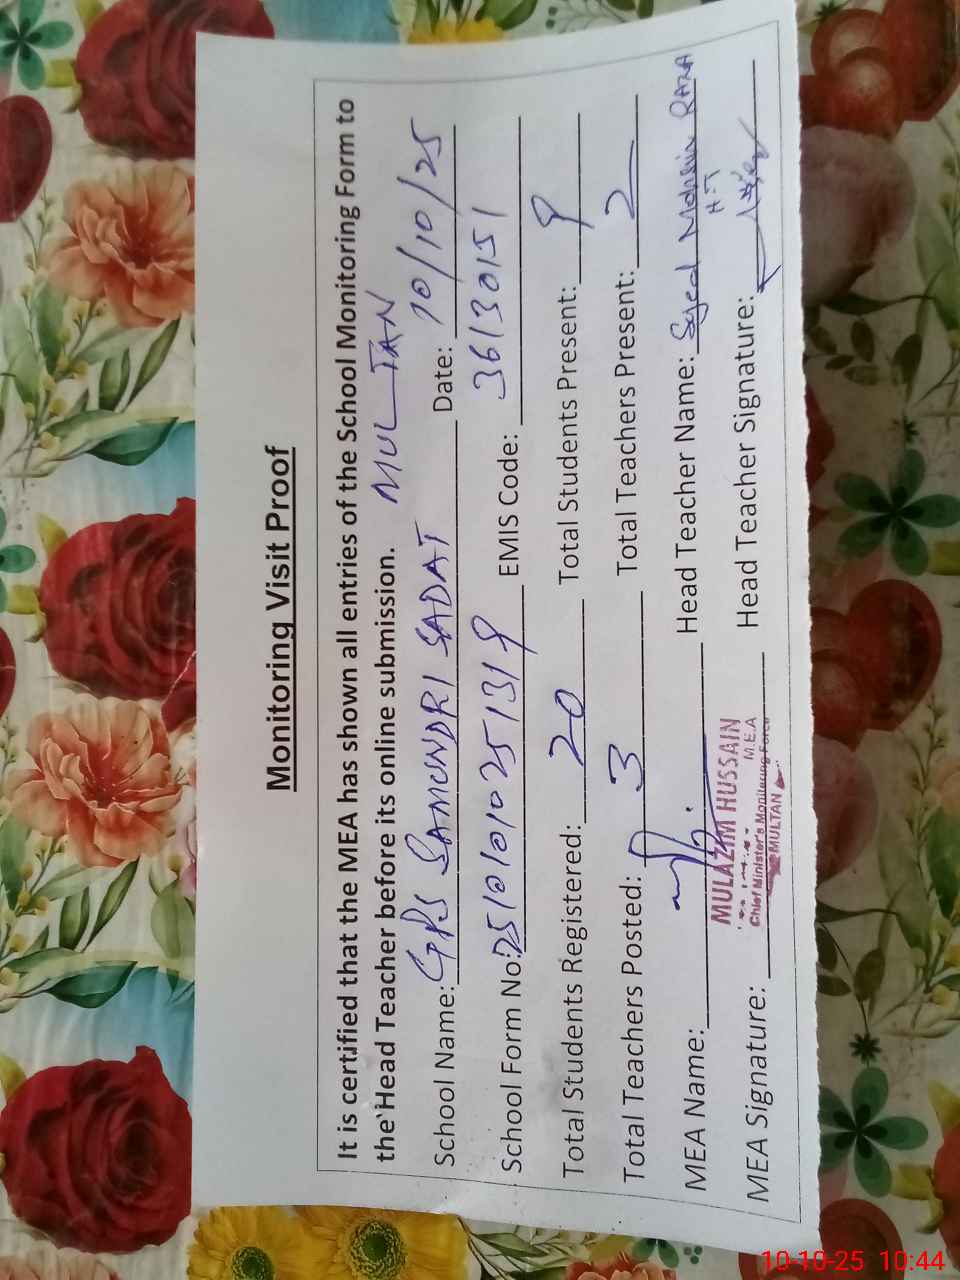 Monitoring Visit Proof
It is certified that the MEA has shown all entries of the School Monitoring Form to
the Head Teacher before its online submission.
MUL TAN
School Name: GPS SAMUNDRI SADAT Date: 10/10/25
School Form No: 25101010251319 EMIS Code: 36130151
Total Students Registered: 20 Total Students Present: 9
Total Teachers Posted: 3 Total Teachers Present: 2
MEA Name: Head Teacher Name: Syed Mohsin RAZA
H-T
MULAZIM HUSSAIN
M.E.A
Chief Minister's Monitoring Force
MULTAN
MEA Signature: Head Teacher Signature:
10-10-25 10:44